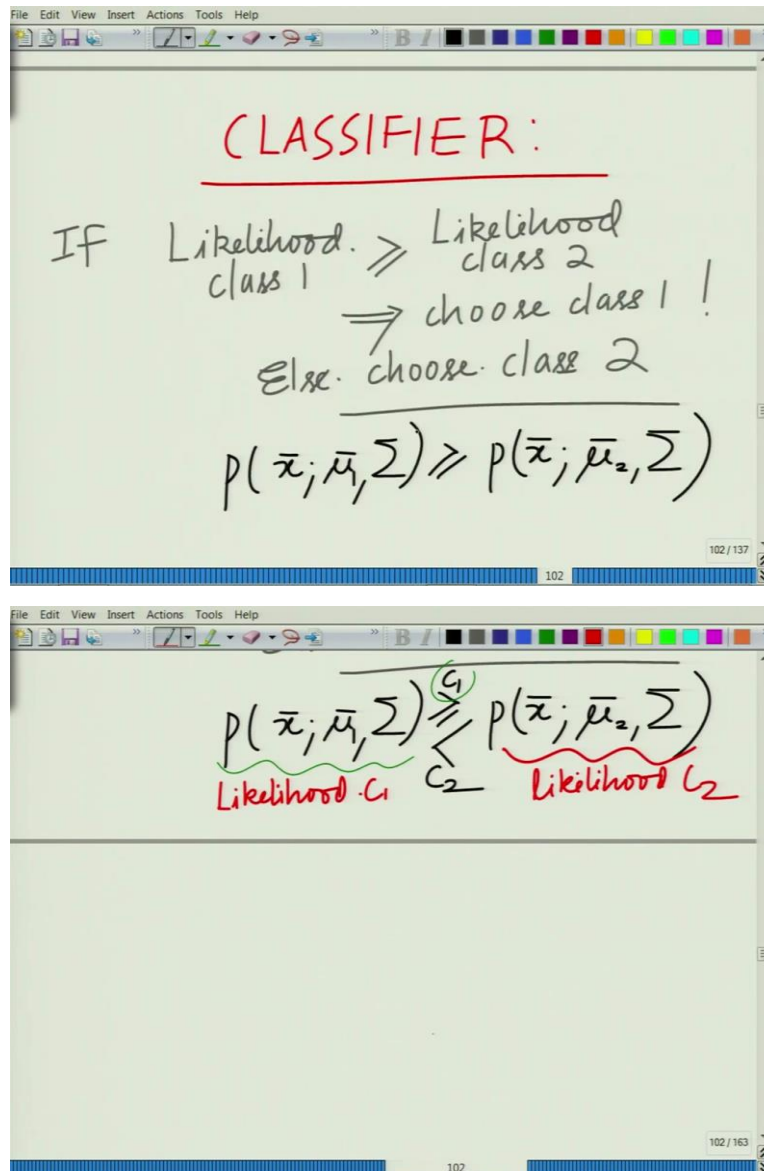 File Edit View Insert Actions Tools Help
B I
CLASSIFIER:
If Likelihood. ≥ Likelihood
class 1 class 2
⇒ choose class 1 !
Else. choose. class 2
p( x̄; μ̄₁, Σ) ≥ p(x̄; μ̄₂, Σ)
102 / 137
102
File Edit View Insert Actions Tools Help
B I
C₁
p( x̄; μ̄₁, Σ) ≥ < p(x̄; μ̄₂, Σ)
Likelihood. C₁ C₂ Likelihood C₂
102 / 163
102